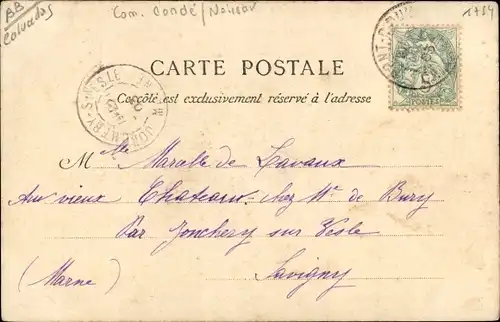 BB
Calvados
Com. Condé/Noireau
CARTE POSTALE
Ce côté est exclusivement réservé à l'adresse
POSTES
JONCHERY-S-VESLE
MARNE
M lle Marelle de Lavaux
Aux vieux Chateaux - chez Mr de Bury
Par Jonchery sur Vesle
Savigny
(Marne)